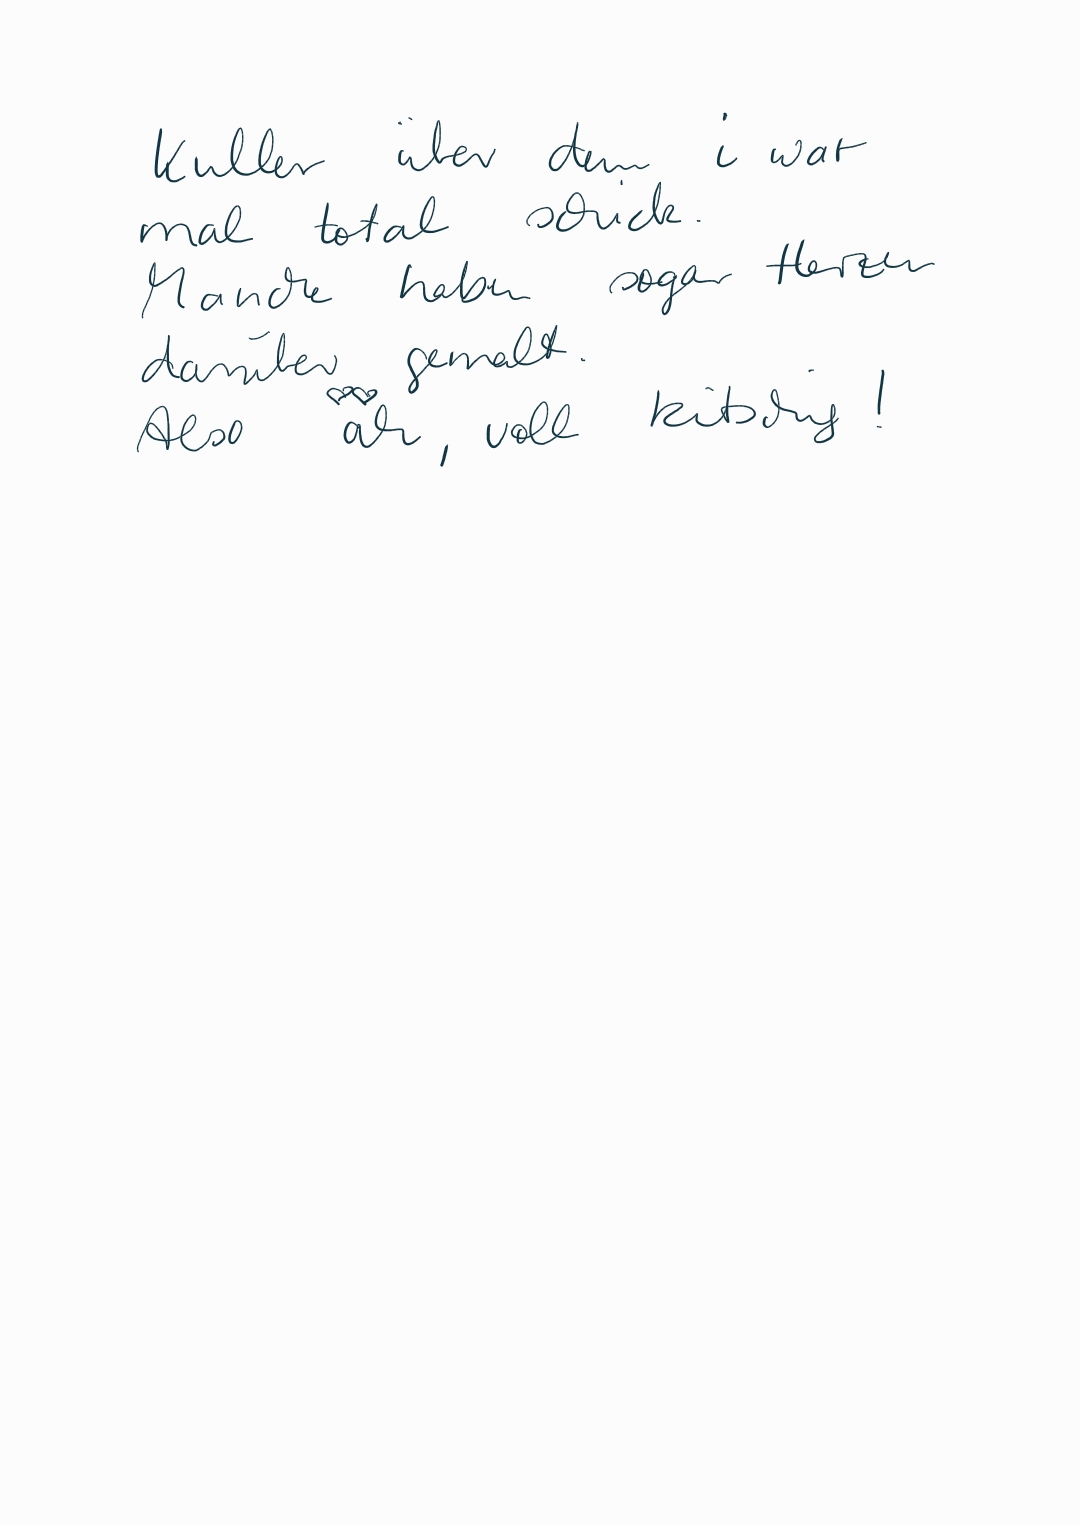 Kuller über dem i war
mal total schick.
Manche haben sogar Herzen
darüber gemalt.
Also äh, voll kitschig!